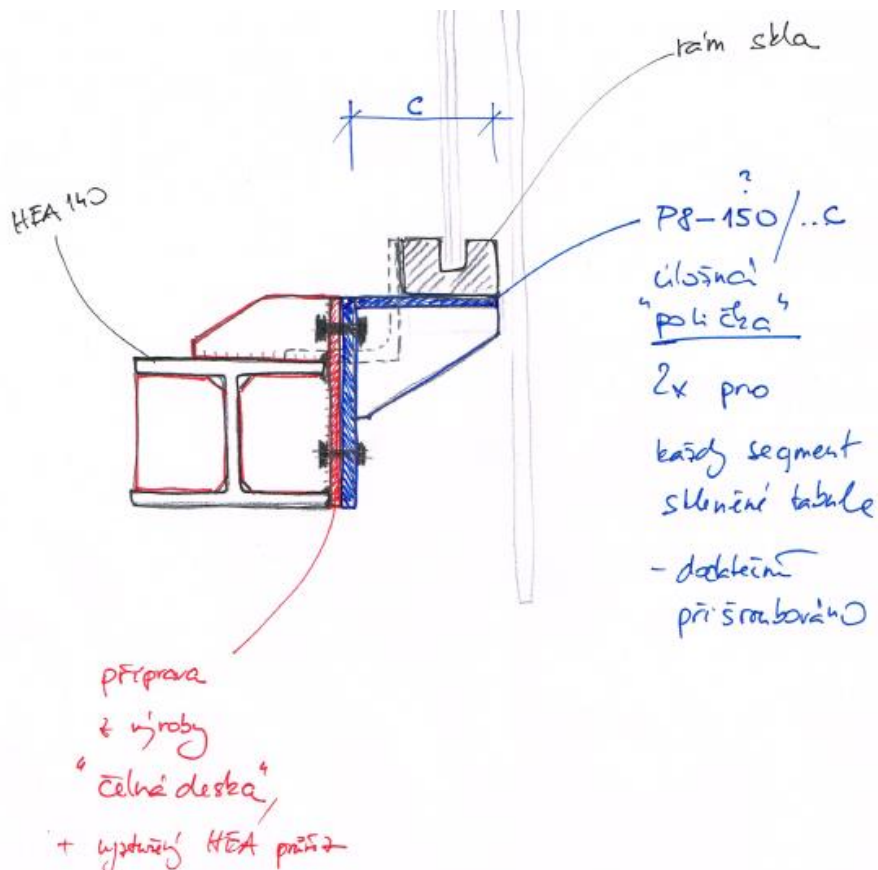 rám skla
c
HEA 140
?
P8-150/..c
úložná
"polička"
2x pro
každý segment
skleněné tabule
- dodatečně
přišroubováno
příprava
z výroby
"čelná deska"
+ vyztužený HEA průřez